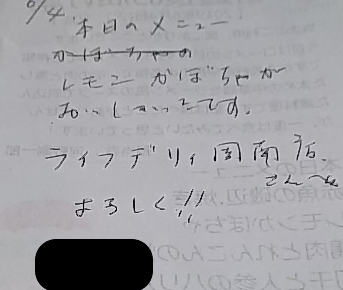 6/4 本日のメニュー
かぼちゃの
レモンかぼちゃが
おいしかったです。
ライフデリィ周南店
さんへ
よろしく!!